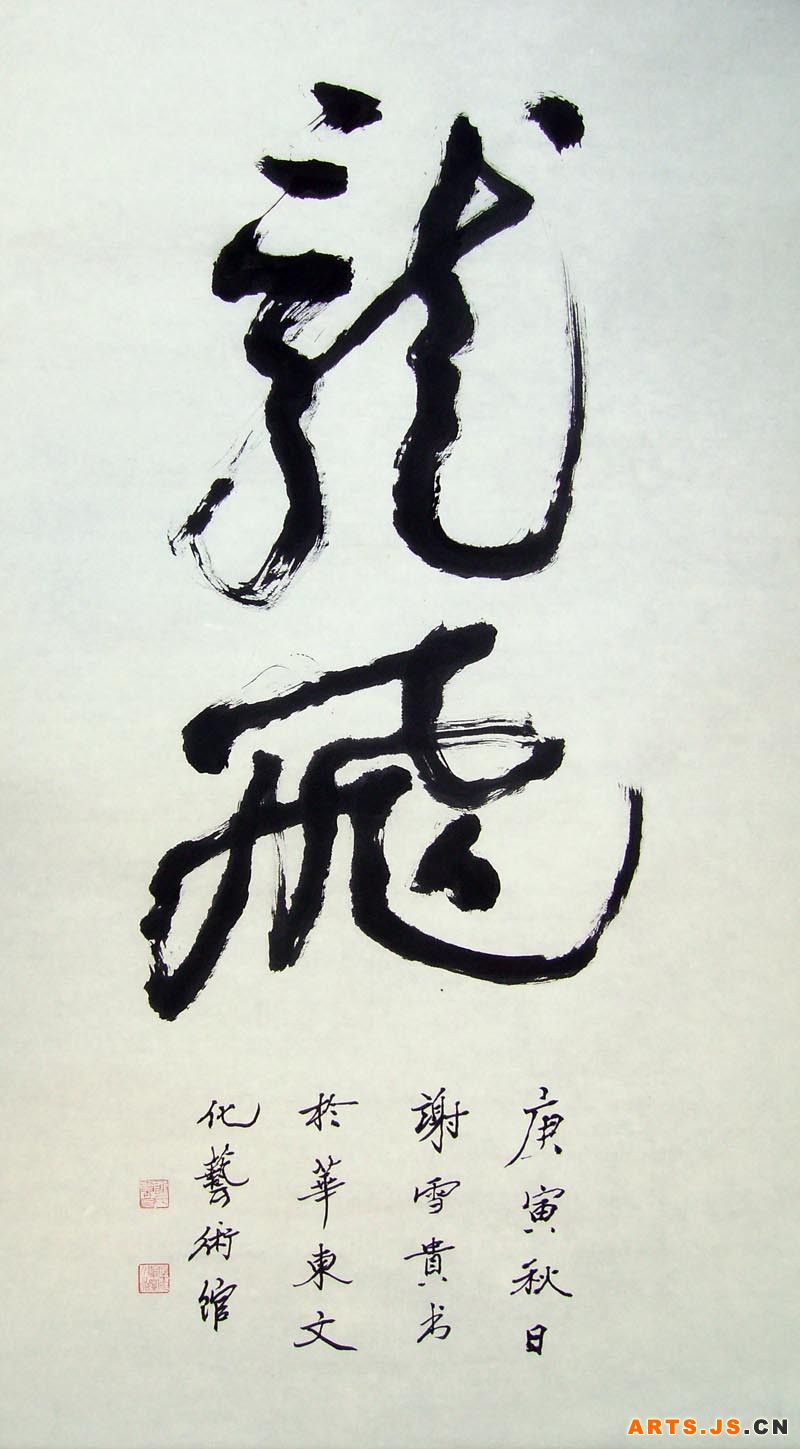 龍飛
庚寅秋日
謝雪貴书
於華東文
化藝術館
ARTS.JS.CN